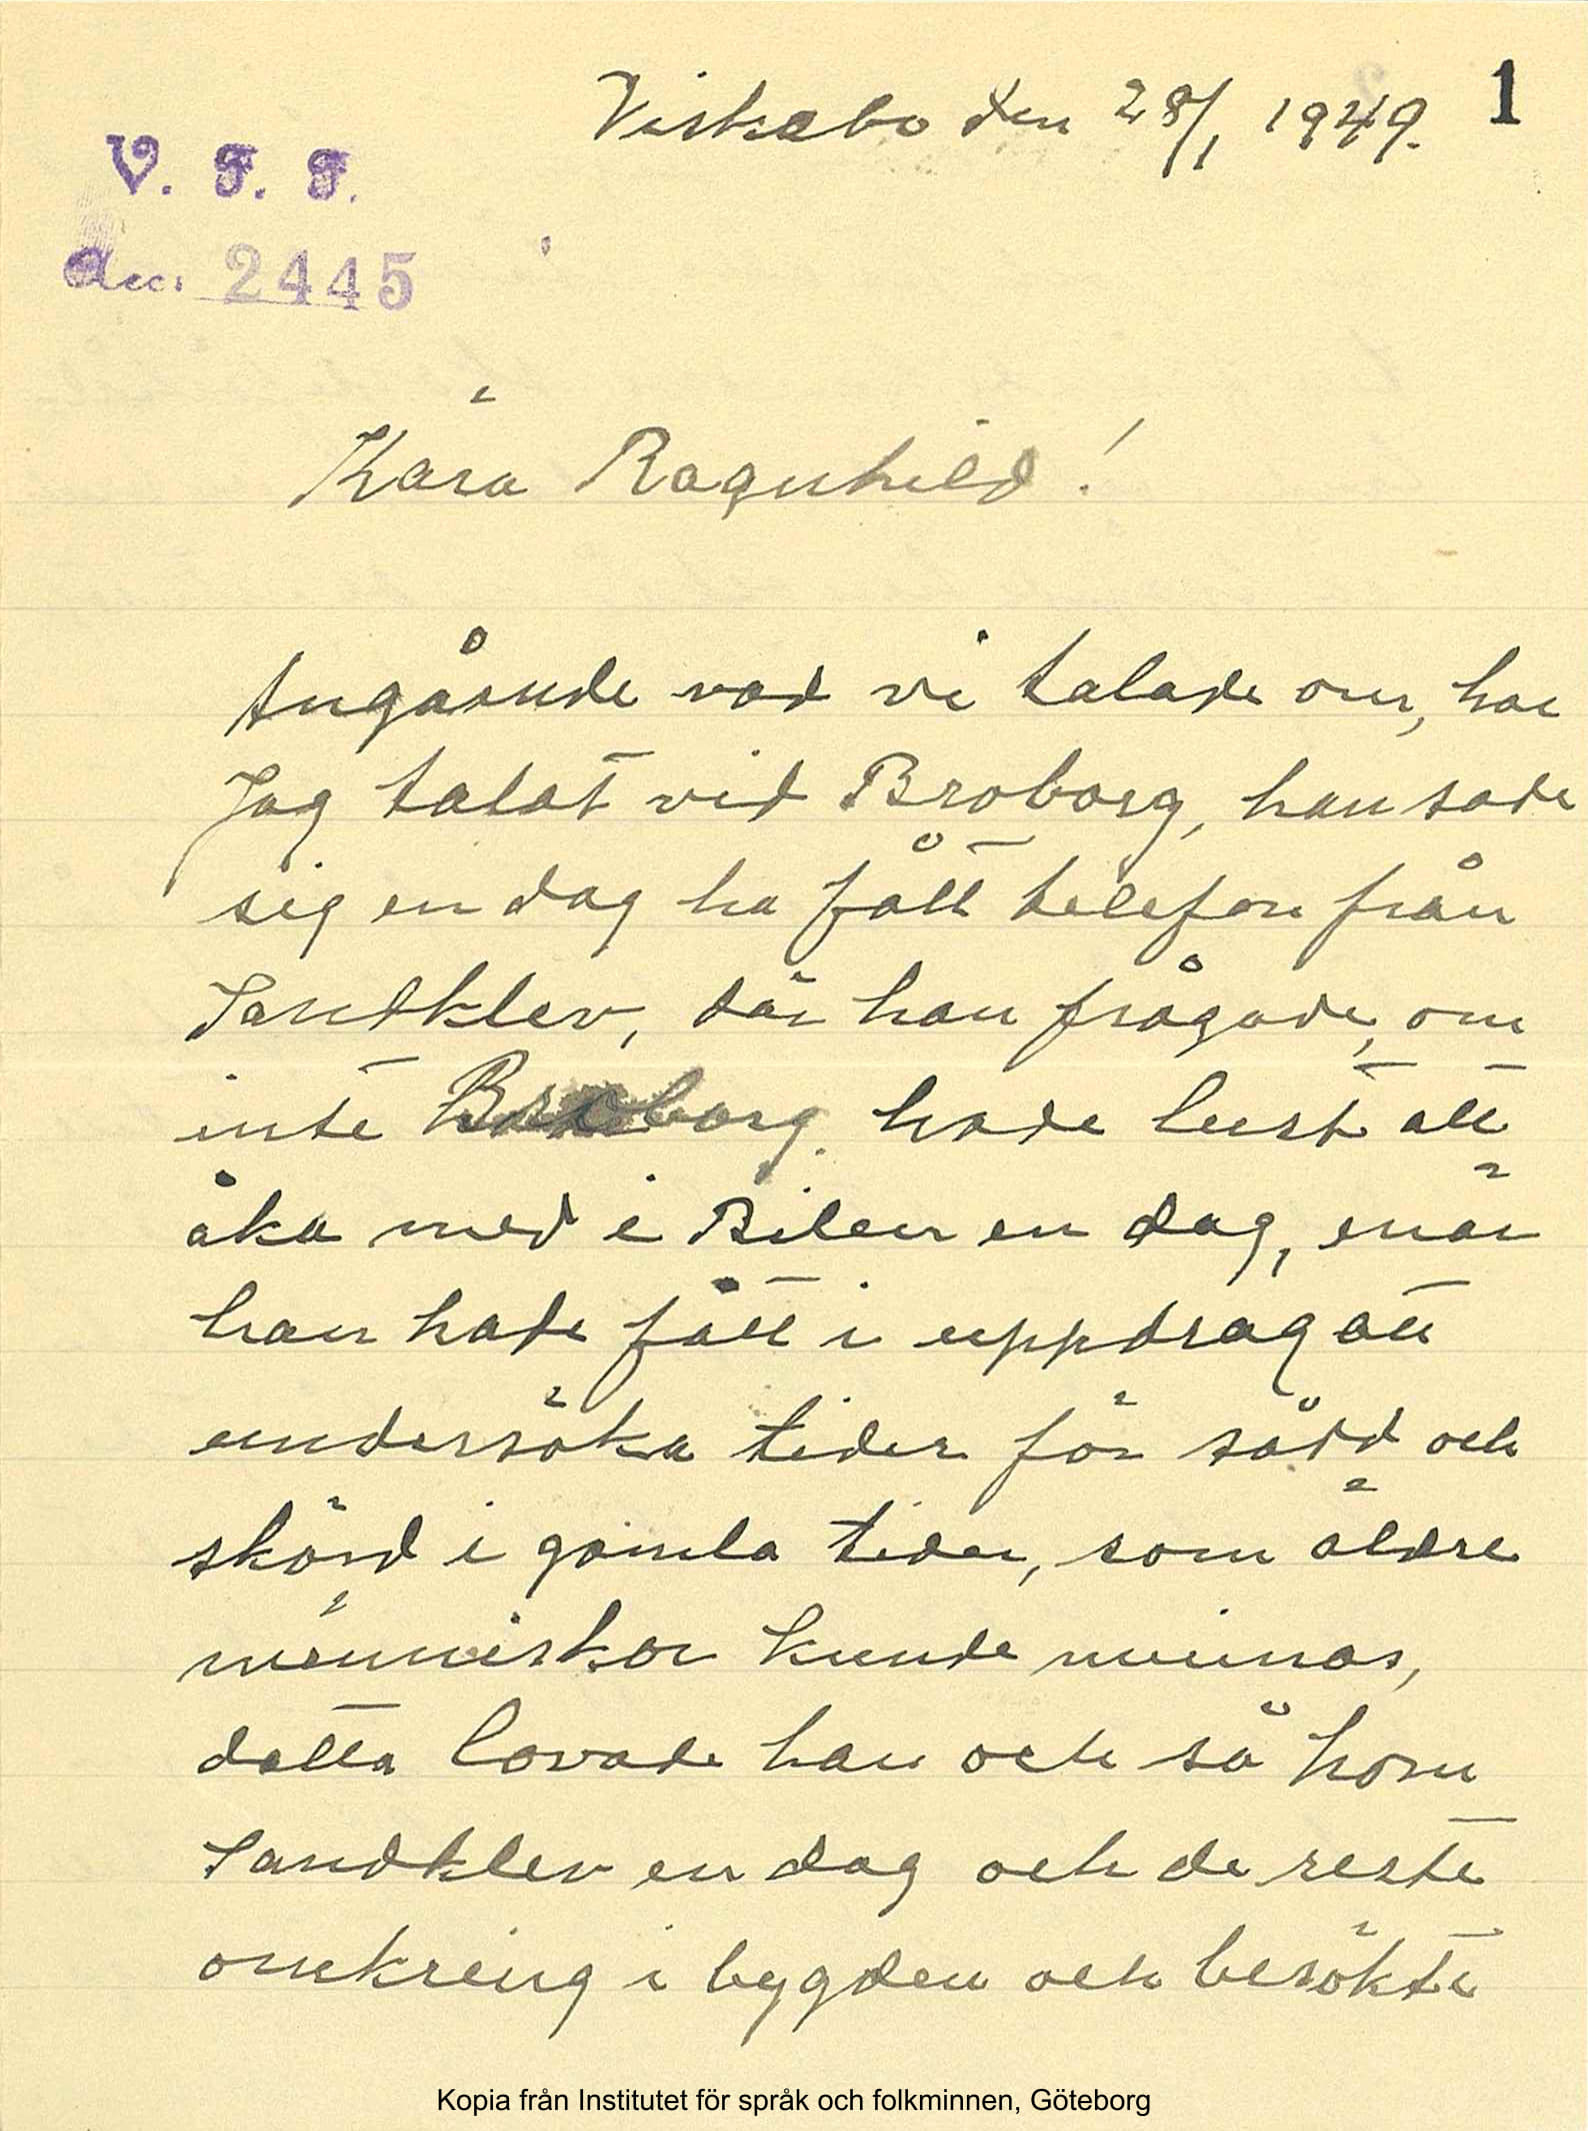 Viskebo den 28/1 1949. 1
V. F. F.
Acc. 2445
Kära Ragnhild!
Angående vad vi talade om, har
Jag talat vid Broborg, han sade
sig en dag ha fått telefon från
Sandklev, där han frågade, om
inte Broborg. hade lust att
åka med i Bilen en dag, enär
han hade fått i uppdrag att
undersöka tider för sådd och
skörd i gamla tider, som äldre
människor kunde minnas,
detta lovade han och så kom
Sandklev en dag och de reste
omkring i bygden och besökte
Kopia från Institutet för språk och folkminnen, Göteborg